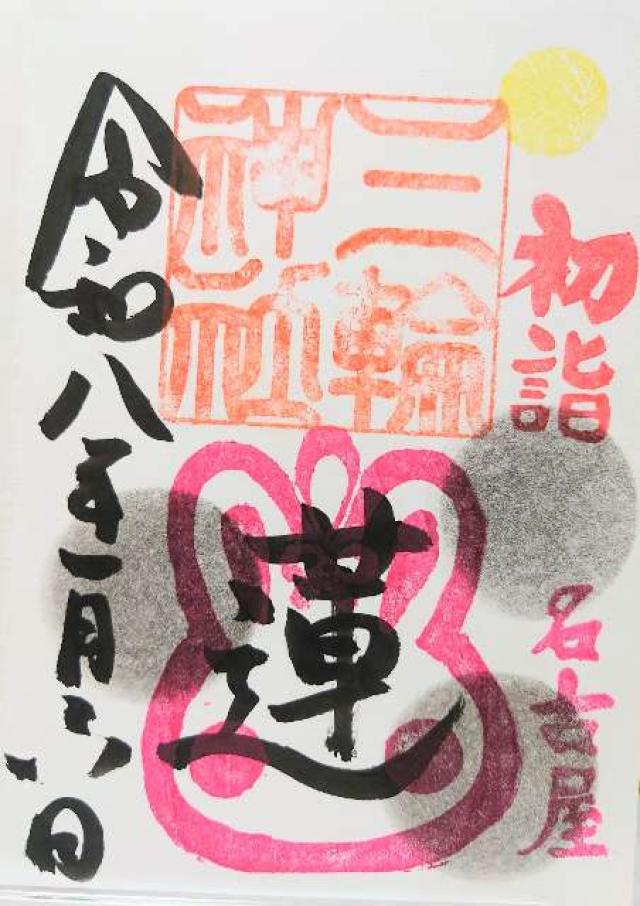 初詣
名古屋
三輪
神社
蓮
令和八年一月六日